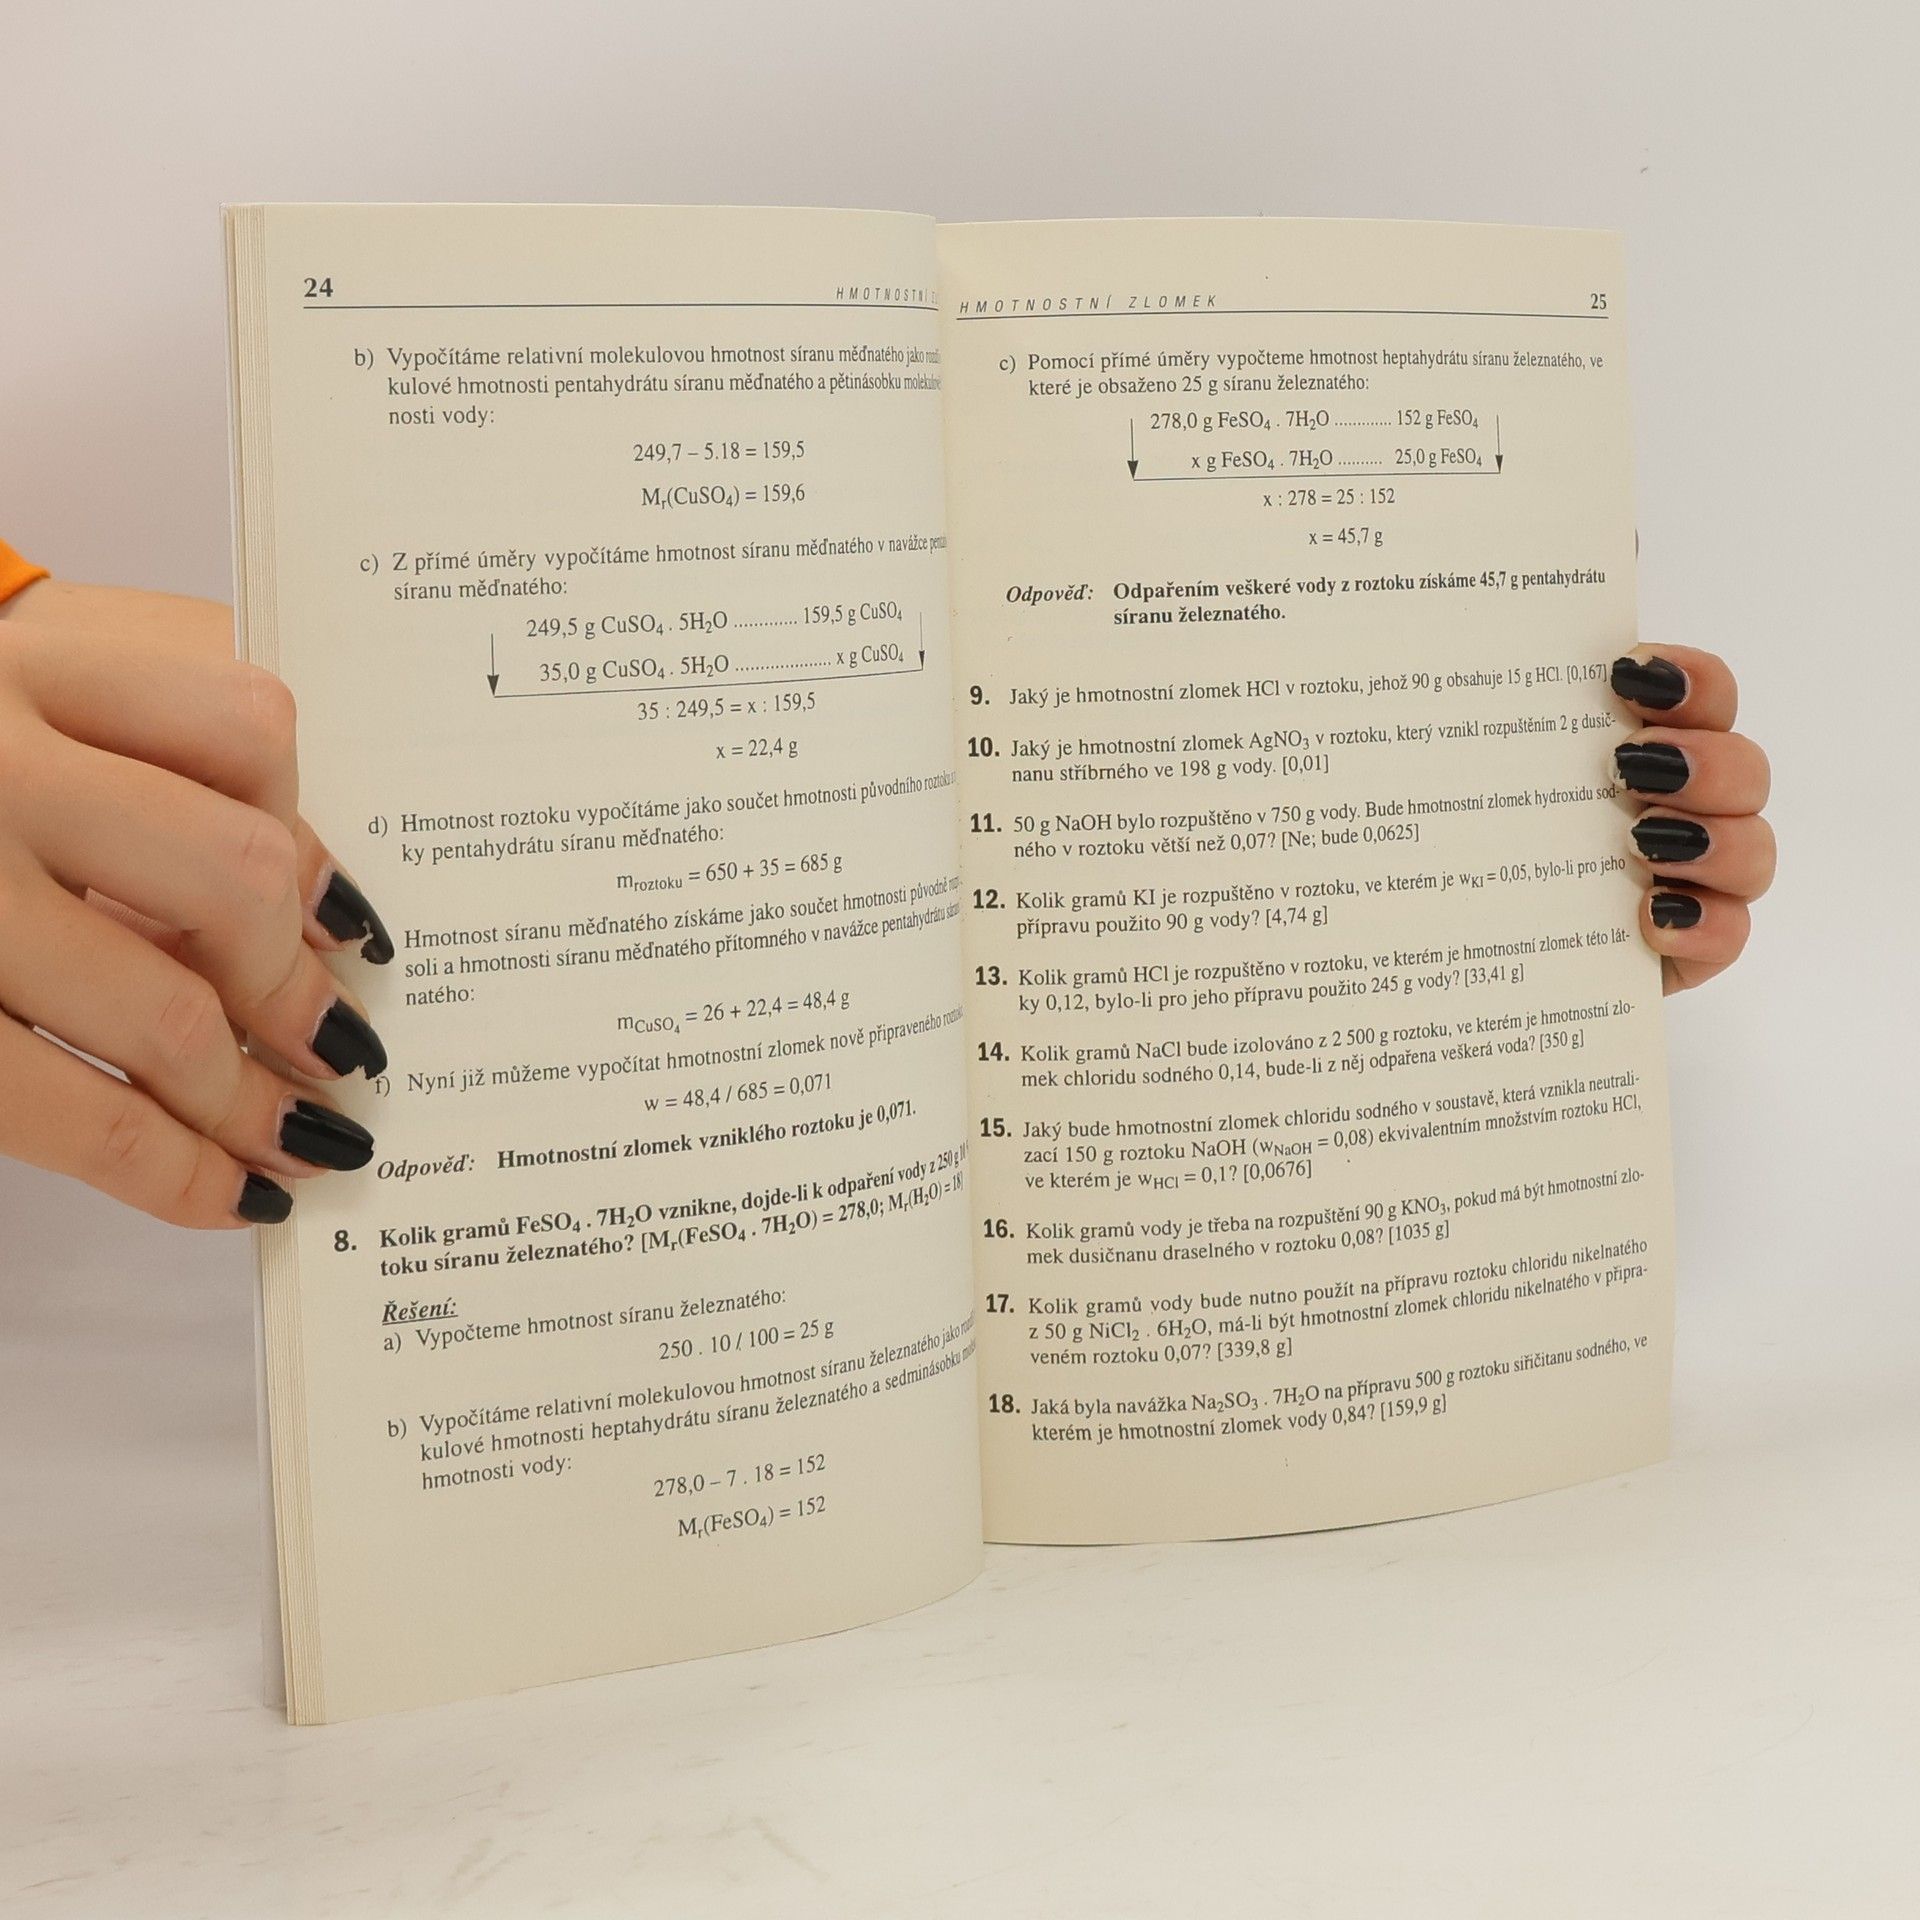 24
HMOTNOSTNÍ
b) Vypočítáme relativní molekulovou hmotnost síranu měďnatého jako
kulové hmotnosti pentahydrátu síranu měďnatého a pětinásobku
nosti vody:
249,7 – 5.18 = 159,5
Mr(CuSO4) = 159,6
c) Z přímé úměry vypočítáme hmotnost síranu měďnatého v navážce
síranu měďnatého:
249,5 g CuSO4 . 5H2O ............. 159,5 g CuSO4
35,0 g CuSO4 . 5H2O .................... x g CuSO4
35 : 249,5 = x : 159,5
x = 22,4 g
d) Hmotnost roztoku vypočítáme jako součet hmotnosti původního roztoku
ky pentahydrátu síranu měďnatého:
mroztoku = 650 + 35 = 685 g
Hmotnost síranu měďnatého získáme jako součet hmotnosti původně
soli a hmotnosti síranu měďnatého přítomného v navážce pentahydrátu
natého:
mCuSO4 = 26 + 22,4 = 48,4 g
f) Nyní již můžeme vypočítat hmotnostní zlomek nově připraveného
w = 48,4 / 685 = 0,071
Odpověď: Hmotnostní zlomek vzniklého roztoku je 0,071.
8. Kolik gramů FeSO4 . 7H2O vznikne, dojde-li k odpaření vody z 250 g
toku síranu železnatého? [Mr(FeSO4 . 7H2O) = 278,0; Mr(H2O) = 18]
Řešení:
a) Vypočteme hmotnost síranu železnatého:
250 . 10 / 100 = 25 g
b) Vypočítáme relativní molekulovou hmotnost síranu železnatého jako
kulové hmotnosti heptahydrátu síranu železnatého a sedminásobku
hmotnosti vody:
278,0 – 7 . 18 = 152
Mr(FeSO4) = 152
HMOTNOSTNÍ ZLOMEK
25
c) Pomocí přímé úměry vypočteme hmotnost heptahydrátu síranu železnatého, ve
které je obsaženo 25 g síranu železnatého:
278,0 g FeSO4 . 7H2O ............. 152 g FeSO4
x g FeSO4 . 7H2O .......... 25,0 g FeSO4
x : 278 = 25 : 152
x = 45,7 g
Odpověď: Odpařením veškeré vody z roztoku získáme 45,7 g pentahydrátu
síranu železnatého.
9. Jaký je hmotnostní zlomek HCl v roztoku, jehož 90 g obsahuje 15 g HCl. [0,167]
10. Jaký je hmotnostní zlomek AgNO3 v roztoku, který vznikl rozpuštěním 2 g dusič-
nanu stříbrného ve 198 g vody. [0,01]
11. 50 g NaOH bylo rozpuštěno v 750 g vody. Bude hmotnostní zlomek hydroxidu sod-
ného v roztoku větší než 0,07? [Ne; bude 0,0625]
12. Kolik gramů KI je rozpuštěno v roztoku, ve kterém je wKI = 0,05, bylo-li pro jeho
přípravu použito 90 g vody? [4,74 g]
13. Kolik gramů HCl je rozpuštěno v roztoku, ve kterém je hmotnostní zlomek této lát-
ky 0,12, bylo-li pro jeho přípravu použito 245 g vody? [33,41 g]
14. Kolik gramů NaCl bude izolováno z 2 500 g roztoku, ve kterém je hmotnostní zlo-
mek chloridu sodného 0,14, bude-li z něj odpařena veškerá voda? [350 g]
15. Jaký bude hmotnostní zlomek chloridu sodného v soustavě, která vznikla neutrali-
zací 150 g roztoku NaOH (wNaOH = 0,08) ekvivalentním množstvím roztoku HCl,
ve kterém je wHCl = 0,1? [0,0676]
16. Kolik gramů vody je třeba na rozpuštění 90 g KNO3, pokud má být hmotnostní zlo-
mek dusičnanu draselného v roztoku 0,08? [1035 g]
17. Kolik gramů vody bude nutno použít na přípravu roztoku chloridu nikelnatého
z 50 g NiCl2 . 6H2O, má-li být hmotnostní zlomek chloridu nikelnatého v připra-
veném roztoku 0,07? [339,8 g]
18. Jaká byla navážka Na2SO3 . 7H2O na přípravu 500 g roztoku siřičitanu sodného, ve
kterém je hmotnostní zlomek vody 0,84? [159,9 g]